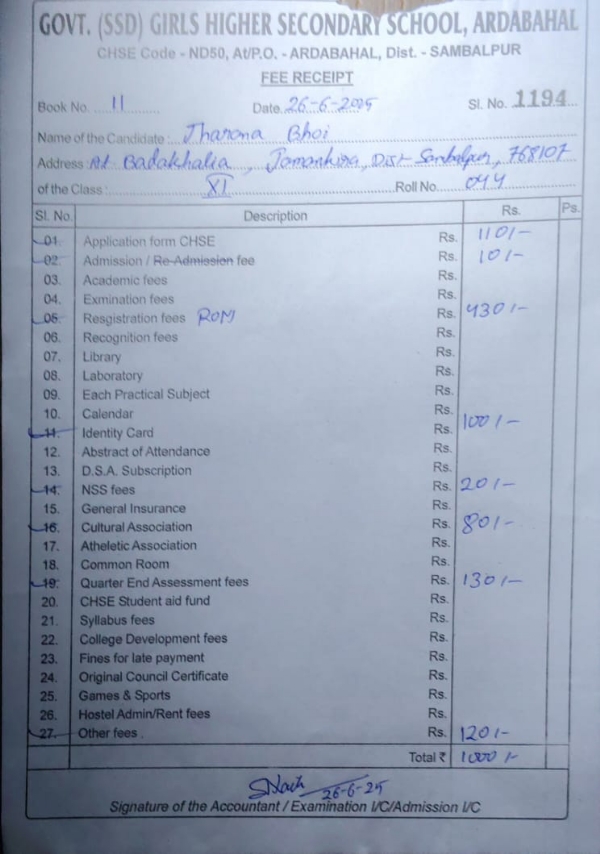 GOVT. (SSD) GIRLS HIGHER SECONDARY SCHOOL, ARDABAHAL
CHSE Code - ND50, At/P.O. - ARDABAHAL, Dist. - SAMBALPUR
FEE RECEIPT
Book No. 11 Date 26-6-2025 Sl. No. 1194
Name of the Candidate : Jharana Bhoi
Address : At Badakhalia, Jamankira, Dist Sambalpur, 768107
of the Class : XI Roll No. 044
Sl. No. Description Rs. Ps.
01. Application form CHSE Rs. 110/-
02. Admission / Re-Admission fee Rs. 10/-
03. Academic fees Rs.
04. Exmination fees Rs.
05. Resgistration fees Rs. 430/-
06. Recognition fees Rs.
07. Library Rs.
08. Laboratory Rs.
09. Each Practical Subject Rs.
10. Calendar Rs.
11. Identity Card Rs. 100/-
12. Abstract of Attendance Rs.
13. D.S.A. Subscription Rs.
14. NSS fees Rs. 20/-
15. General Insurance Rs.
16. Cultural Association Rs. 80/-
17. Atheletic Association Rs.
18. Common Room Rs.
19. Quarter End Assessment fees Rs. 130/-
20. CHSE Student aid fund Rs.
21. Syllabus fees Rs.
22. College Development fees Rs.
23. Fines for late payment Rs.
24. Original Council Certificate Rs.
25. Games & Sports Rs.
26. Hostel Admin/Rent fees Rs.
27. Other fees . Rs. 120/-
Total ₹ 1000/-
26-6-25
Signature of the Accountant / Examination I/C/Admission I/C